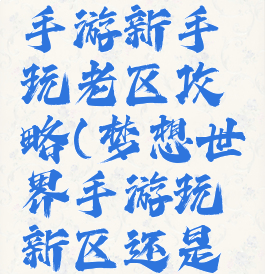 手游新手
玩老区攻
略(梦想世
界手游玩
新区还是